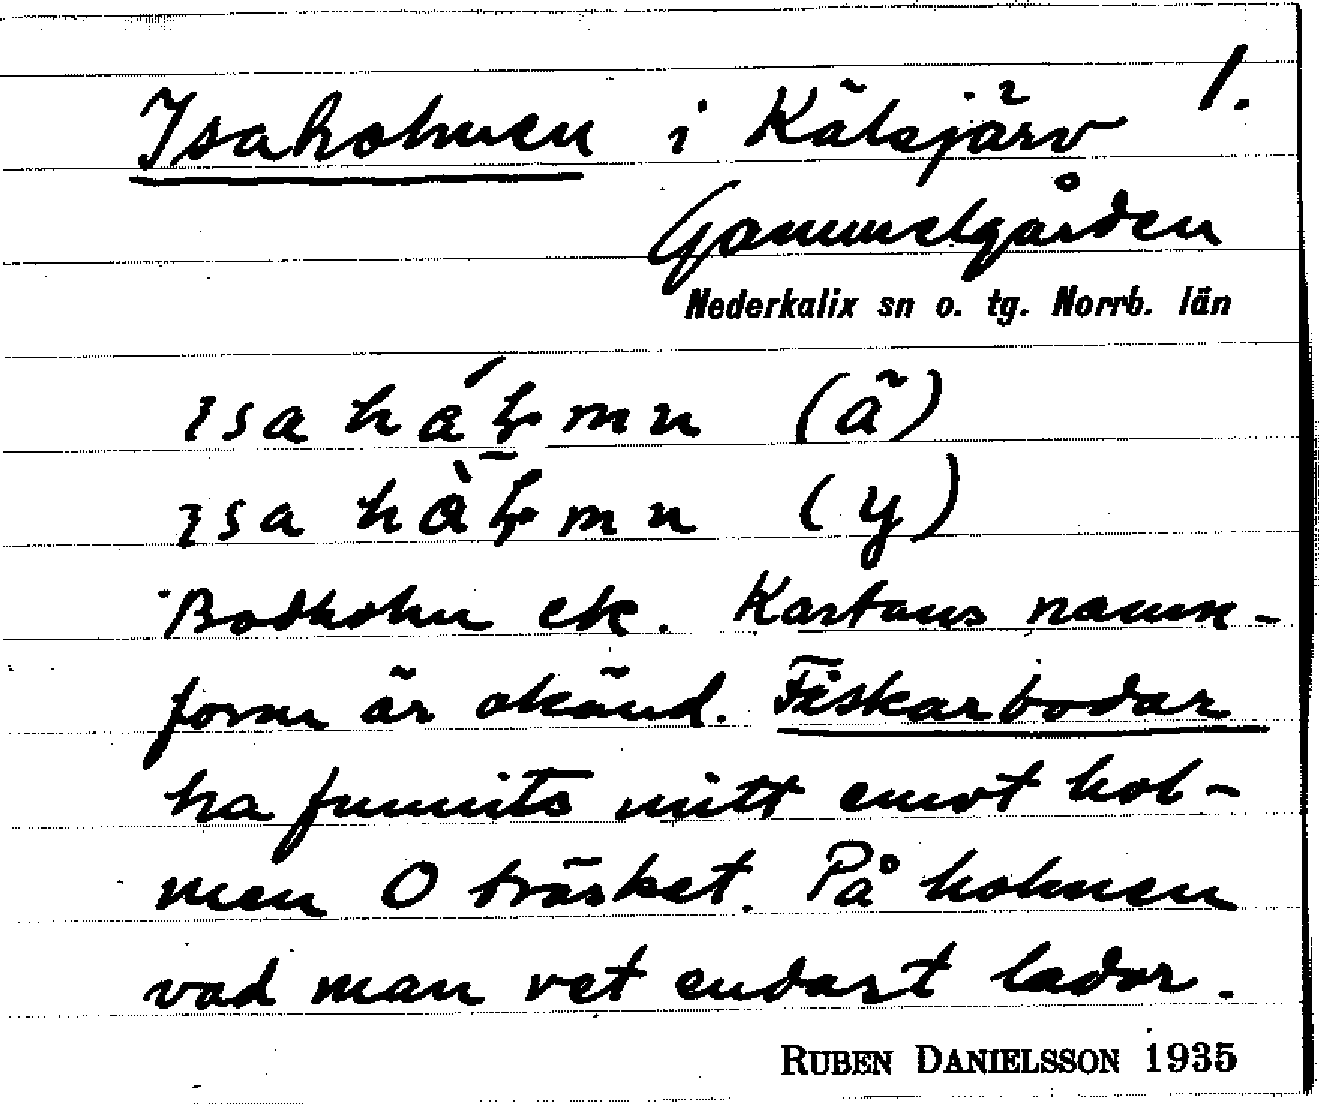 Isaholmen i Kälsjärv 1.
Gammelgården
Nederkalix sn o. tg. Norrb. län
ɪsa háɭmn (ä)
ɪsa hàɭ̄mn (y)
Bodholm ek. Kartans namn-
form är okänd. Fiskarbodar
ha funnits mitt emot hol-
men O träsket. På holmen
vad man vet endast lador.
RUBEN DANIELSSON 1935